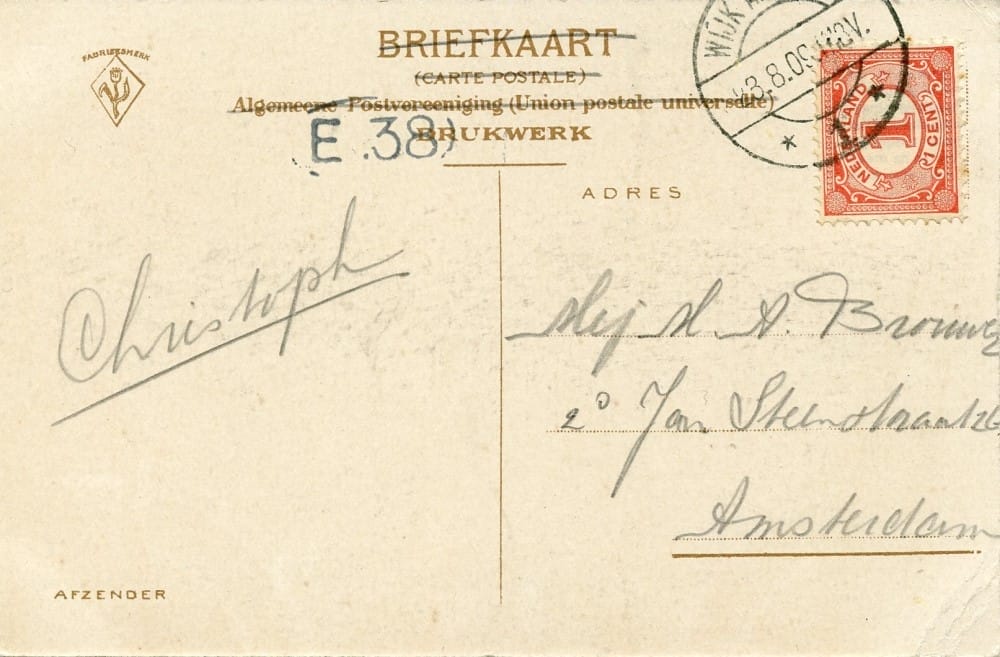 FABRIEKSMERK
BRIEFKAART
(CARTE POSTALE)
Algemeene Postvereeniging (Union postale universelle)
E.38)
DRUKWERK
WIJK A
8.8.09 12V.
1
NEDERLAND
1
1 CENT
ADRES
Christoph
Mej M. A. Brouwe
2° Jan Steenstraat
Amsterdam
AFZENDER